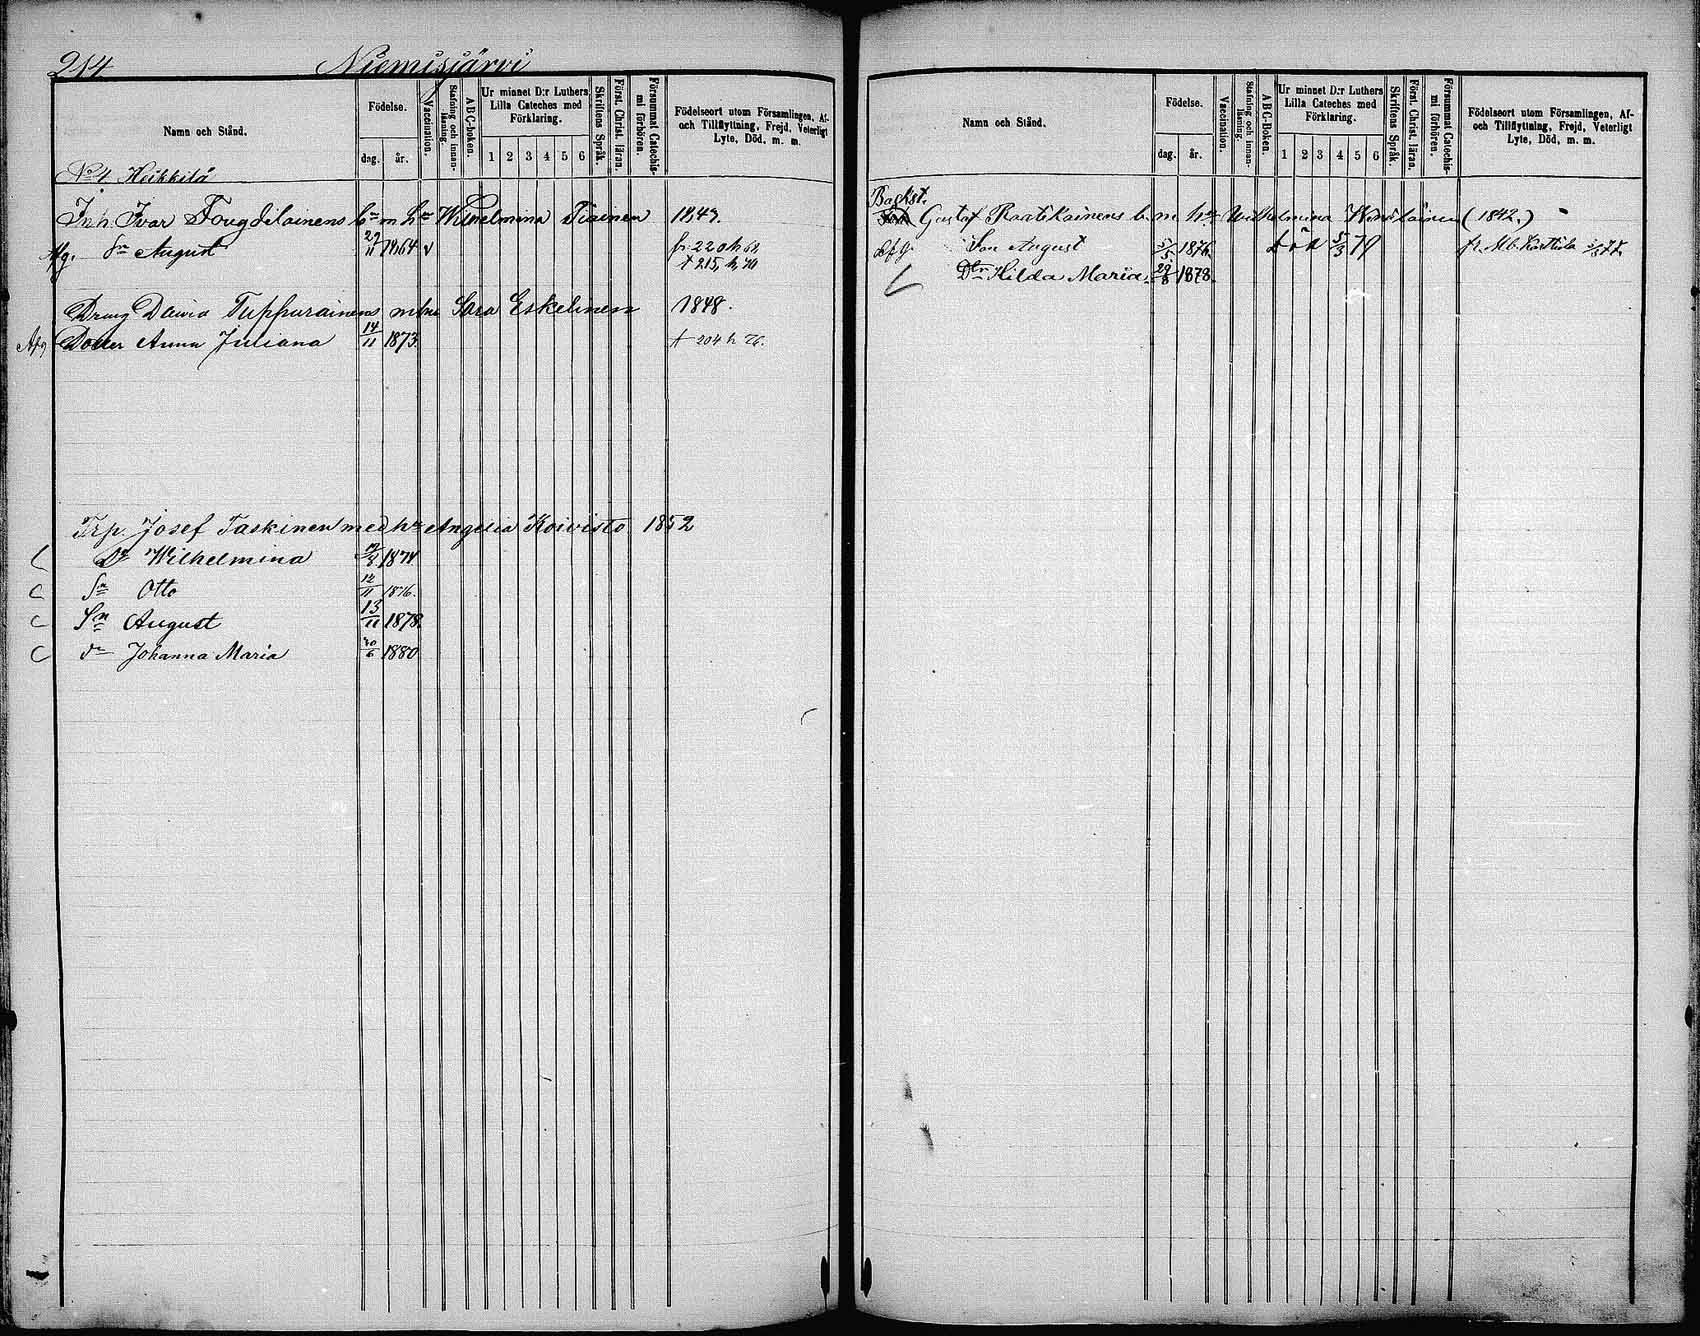 214 Niemisjärvi
Namn och Stånd.
Födelse.
dag. år.
Vaccination.
Stafning och innanläsning.
ABC-boken.
Ur minnet D:r Luthers Lilla Cateches med Förklaring.
1 2 3 4 5 6
Skriftens Språk.
Först. Christ. läran.
Försummat Catechismi förhören.
Födelseort utom Församlingen, Af- och Tillflyttning, Frejd, Veterligt Lyte, Död, m. m.
No 4 Heikkilä
Inh. Ivar Fougdilainens b:n m. h:u Wilhelmina Tiainen 1843.
Afg. Sn August 29/11 1864 v fr. 220 h
t 215, h,
Dräng David Tuppurainens m hu Sara Eskelinen 1848.
Afg Dotter Anna Juliana 14/11 1873. t 204 h 76.
Trp. Josef Taskinen med hu Angelia Koivisto 1852
Dr Wilhelmina 1874
Sn Otto 12/11 1876.
Sn August 13/11 1878.
dr Johanna Maria 20/6 1880
Namn och Stånd.
Födelse.
dag. år.
Vaccination.
Stafning och innanläsning.
ABC-boken.
Ur minnet D:r Luthers Lilla Cateches med Förklaring.
1 2 3 4 5 6
Skriftens Språk.
Först. Christ. läran.
Försummat Catechismi förhören.
Födelseort utom Församlingen, Af- och Tillflyttning, Frejd, Veterligt Lyte, Död, m. m.
Backst.
Gustaf Raatikainens b. m. hu Wilhelmina (1842.)
Afg. Son August 5/5 1876. död 5/3 79 fr. Karttula
Dr Hilda Maria 29/8 1878.